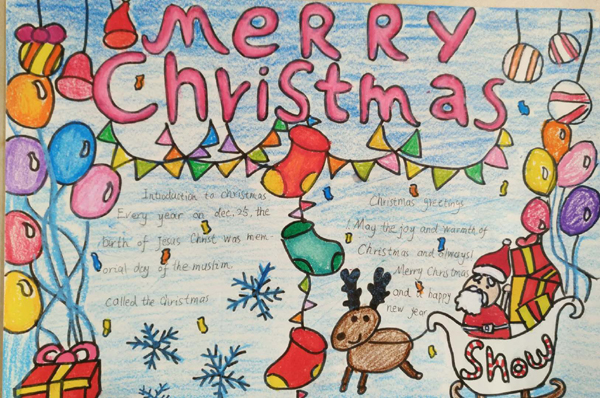 Merry
Christmas
Introduction to christmas
Every year on dec.25.the
birth of Jesus Christ was mem
orial day of the muslim.
called the Christmas
Christmas greetings
May the joy and warmth of
Christmas and always!
Merry Christmas
and a happy
new year
Show